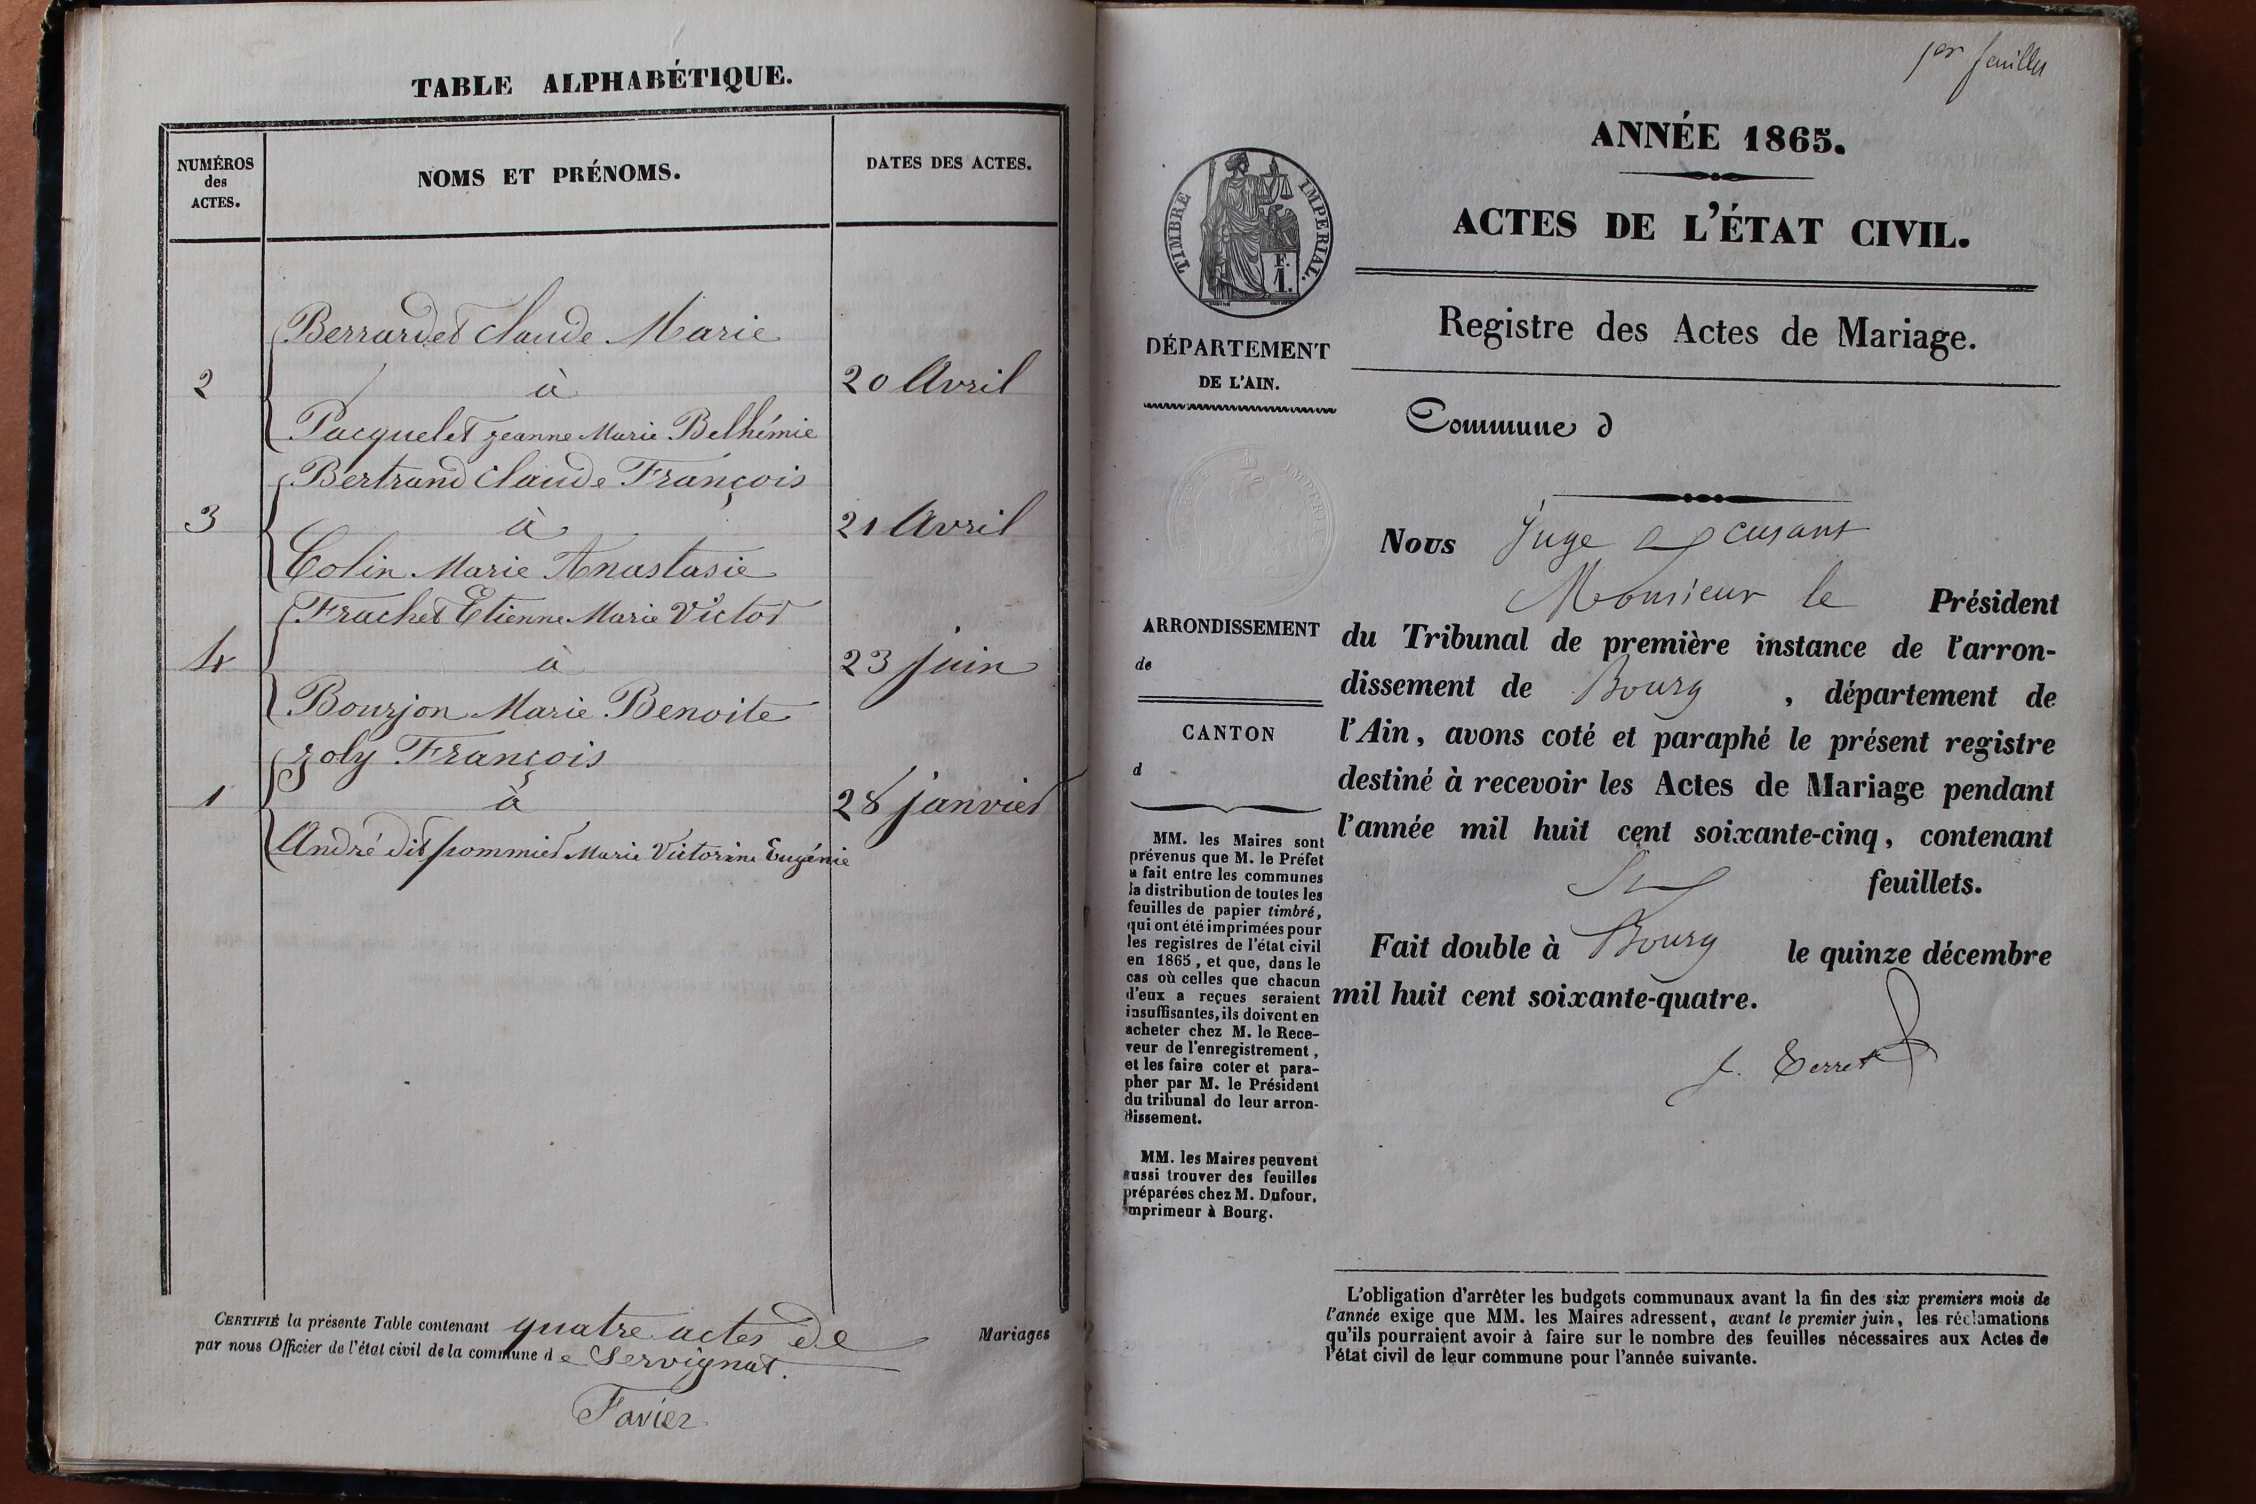 TABLE ALPHABÉTIQUE.
NUMÉROS
des
ACTES.
NOMS ET PRÉNOMS.
DATES DES ACTES.
Berrardet Claude Marie
2 à 20 Avril
Pacquelet jeanne Marie Belhémie
Bertrand Claude François
3 à 21 Avril
Colin Marie Anastasie
Frachet Etienne Marie Victor
4 à 23 juin
Bourjon Marie Benoite
joly François
1 à 28 janvier
André dit pommier Marie Victorine Eugénie
CERTIFIÉ la présente Table contenant quatre actes de Mariages
par nous Officier de l'état civil de la commune de Servignat.
Favier
1er feuillet
ANNÉE 1865.
ACTES DE L'ÉTAT CIVIL.
Registre des Actes de Mariage.
Commune d
TIMBRE IMPERIAL.
F.
1.
DÉPARTEMENT
DE L'AIN.
ARRONDISSEMENT
de
CANTON
d
MM. les Maires sont
prévenus que M. le Préfet
a fait entre les communes
la distribution de toutes les
feuilles de papier timbré,
qui ont été imprimées pour
les registres de l'état civil
en 1865, et que, dans le
cas où celles que chacun
d'eux a reçues seraient
insuffisantes, ils doivent en
acheter chez M. le Rece-
veur de l'enregistrement,
et les faire coter et para-
pher par M. le Président
du tribunal de leur arron-
dissement.
MM. les Maires peuvent
aussi trouver des feuilles
préparées chez M. Dufour,
imprimeur à Bourg.
Nous Juge
Monsieur le Président
du Tribunal de première instance de l'arron-
dissement de Bourg, département de
l'Ain, avons coté et paraphé le présent registre
destiné à recevoir les Actes de Mariage pendant
l'année mil huit cent soixante-cinq, contenant
feuillets.
Fait double à Bourg le quinze décembre
mil huit cent soixante-quatre.
Terret
L'obligation d'arrêter les budgets communaux avant la fin des six premiers mois de
l'année exige que MM. les Maires adressent, avant le premier juin, les réclamations
qu'ils pourraient avoir à faire sur le nombre des feuilles nécessaires aux Actes de
l'état civil de leur commune pour l'année suivante.